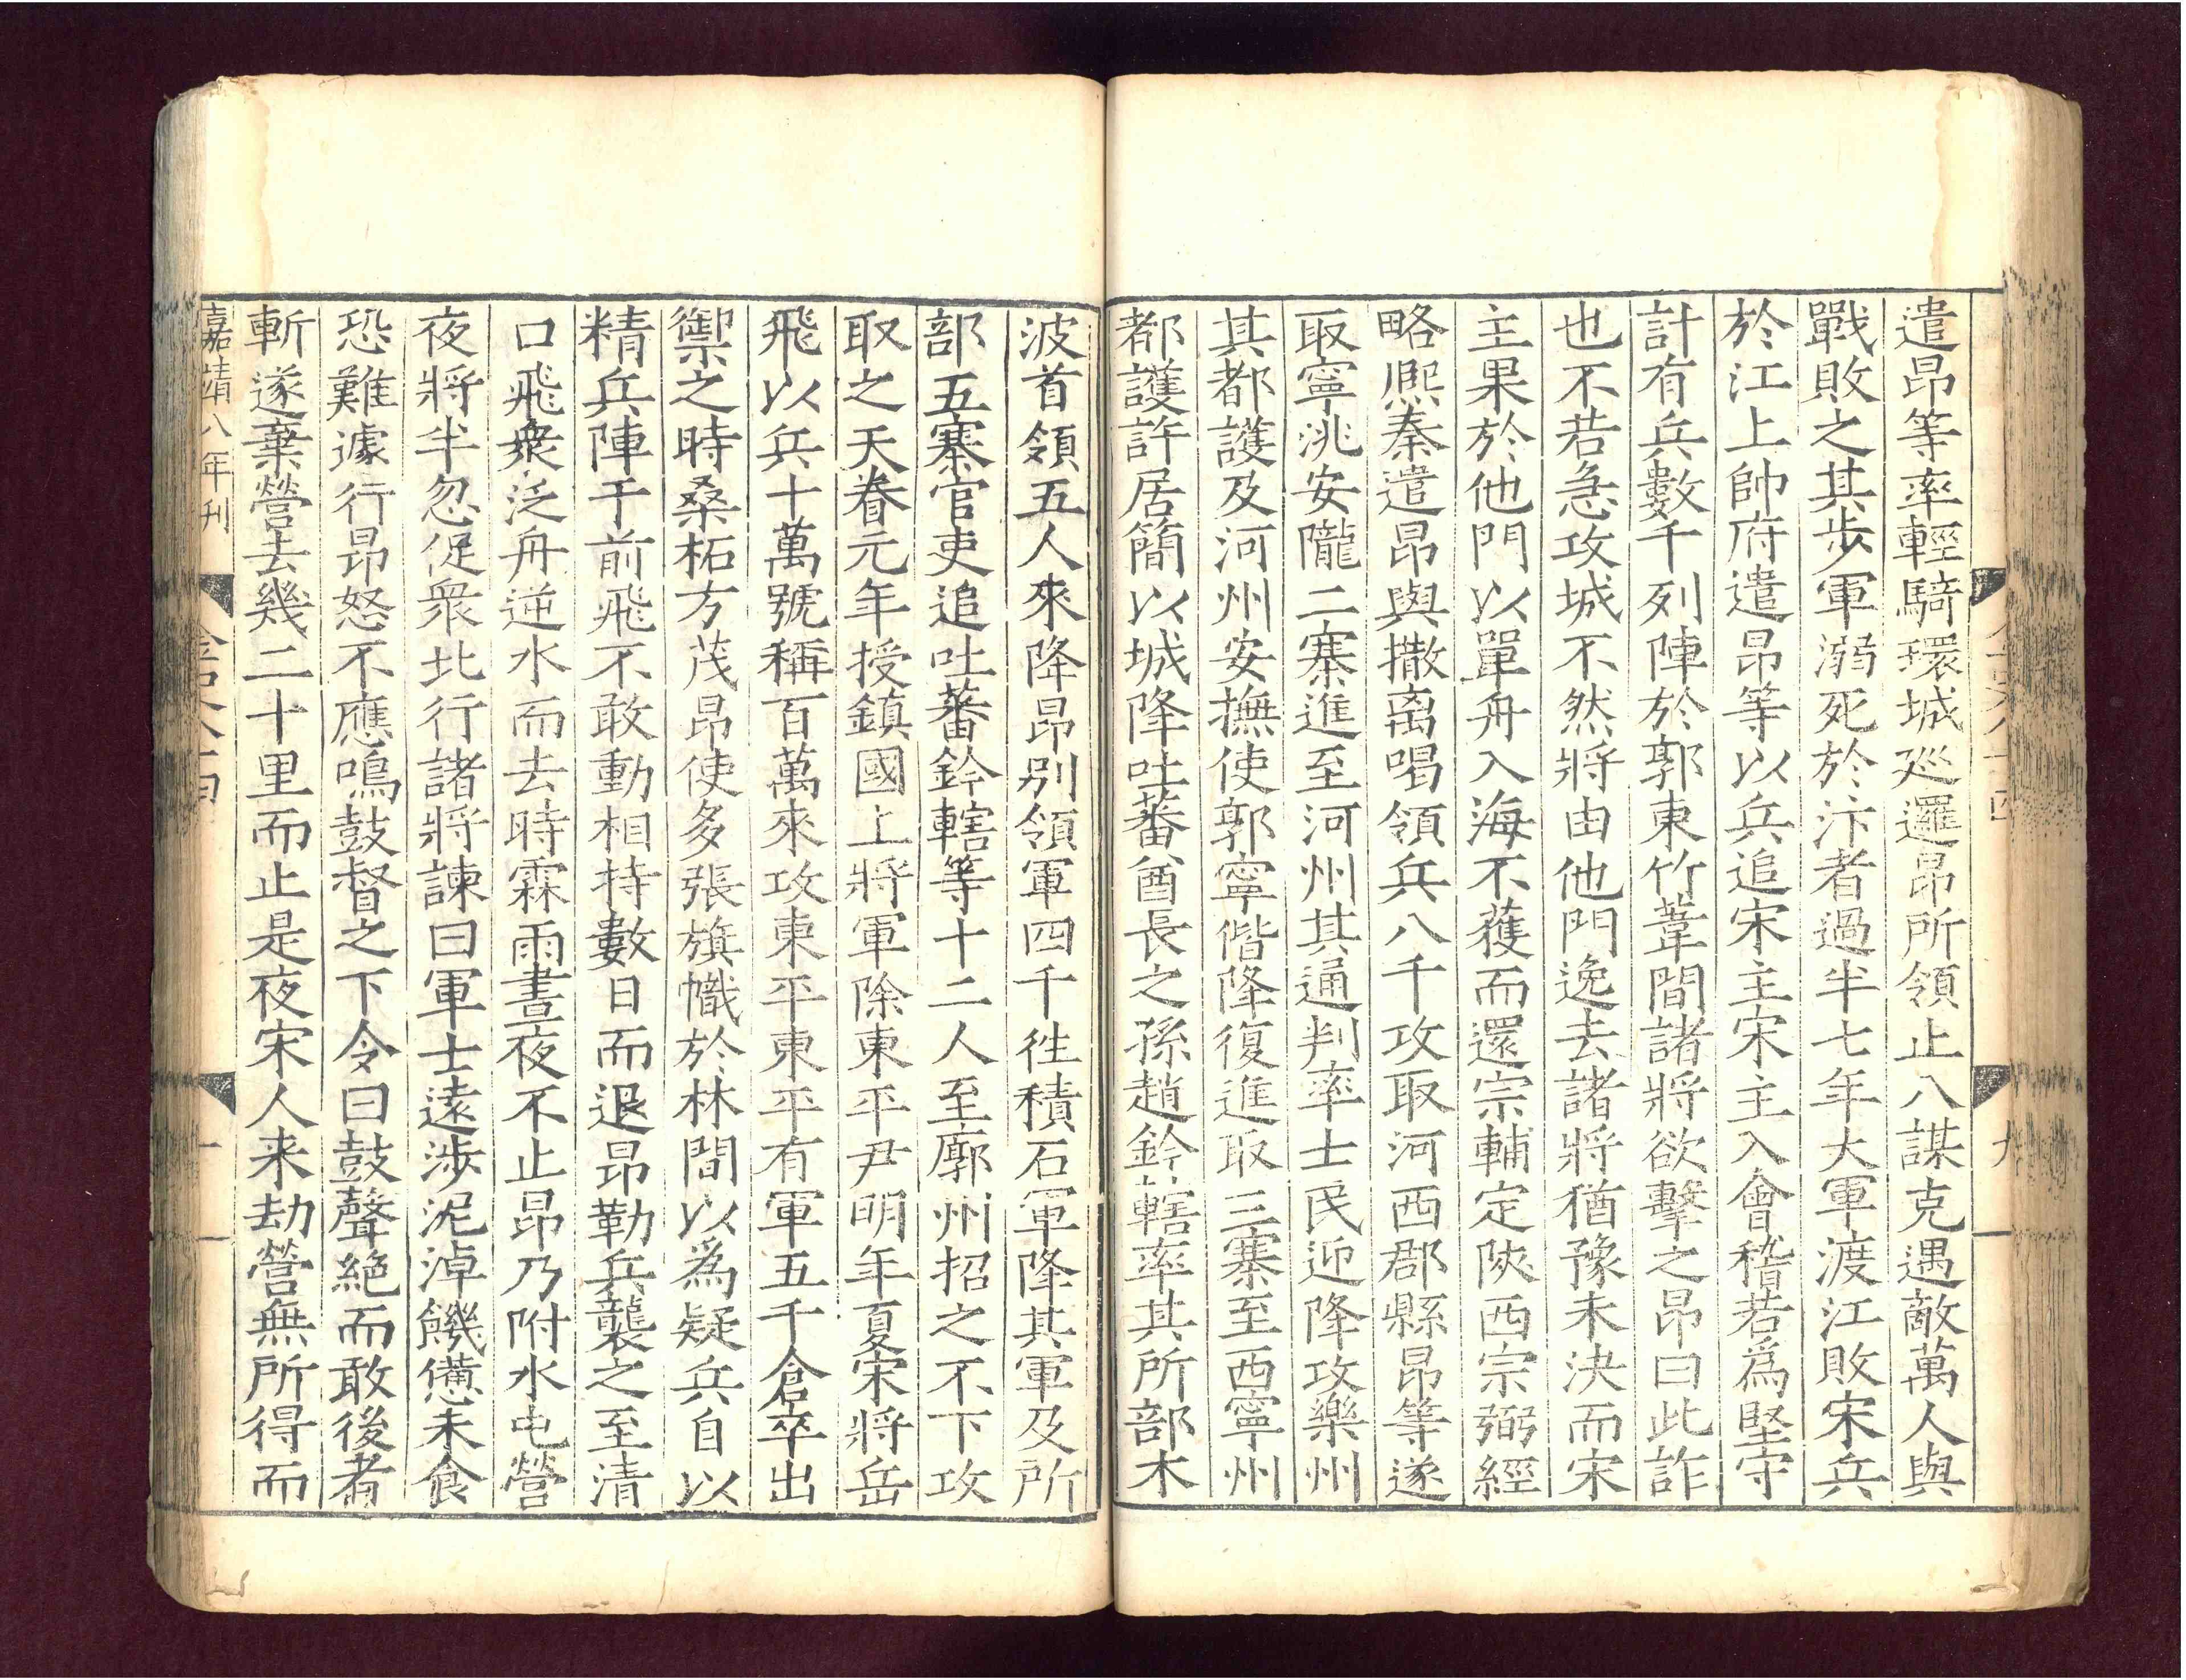 遣昂等率輕騎環城廵邏昂所領止八謀克遇敵萬人與
戰敗之其步軍溺死於汴者過半七年大軍渡江敗宋兵
於江上帥府遣昂等以兵追宋主宋主入會稽若爲堅守
計有兵數千列陣於郭東竹葦間諸將欲擊之昂曰此詐
也不若急攻城不然將由他門逸去諸將猶豫未決而宋
主果於他門以單舟入海不獲而還宗輔定陝西宗弼經
略熙秦遣昂與撒离喝領兵八千攻取河西郡縣昂等遂
取寧洮安隴二寨進至河州其通判率士民迎降攻樂州
其都護及河州安撫使郭寧偕降復進取三寨至西寧州
都護許居簡以城降吐蕃酋長之孫趙鈐轄率其所部木
波首領五人來降昂別領軍四千往積石軍降其軍及所
部五寨官吏追吐蕃鈐轄等十二人至廓州招之不下攻
取之天眷元年授鎮國上將軍除東平尹明年夏宋將岳
飛以兵十萬號稱百萬來攻東平東平有軍五千倉卒出
禦之時桑柘方茂昂使多張旗幟於林間以爲疑兵自以
精兵陣于前飛不敢動相持數日而退昂勒兵襲之至清
口飛衆泛舟逆水而去時霖雨晝夜不止昂乃附水屯營
夜將半忽促衆北行諸將諫曰軍士遠涉泥淖饑憊未食
恐難遽行昂怒不應鳴鼓督之下令曰鼓聲絕而敢後者
斬遂棄營去幾二十里而止是夜宋人来劫營無所得而
嘉靖八年刊